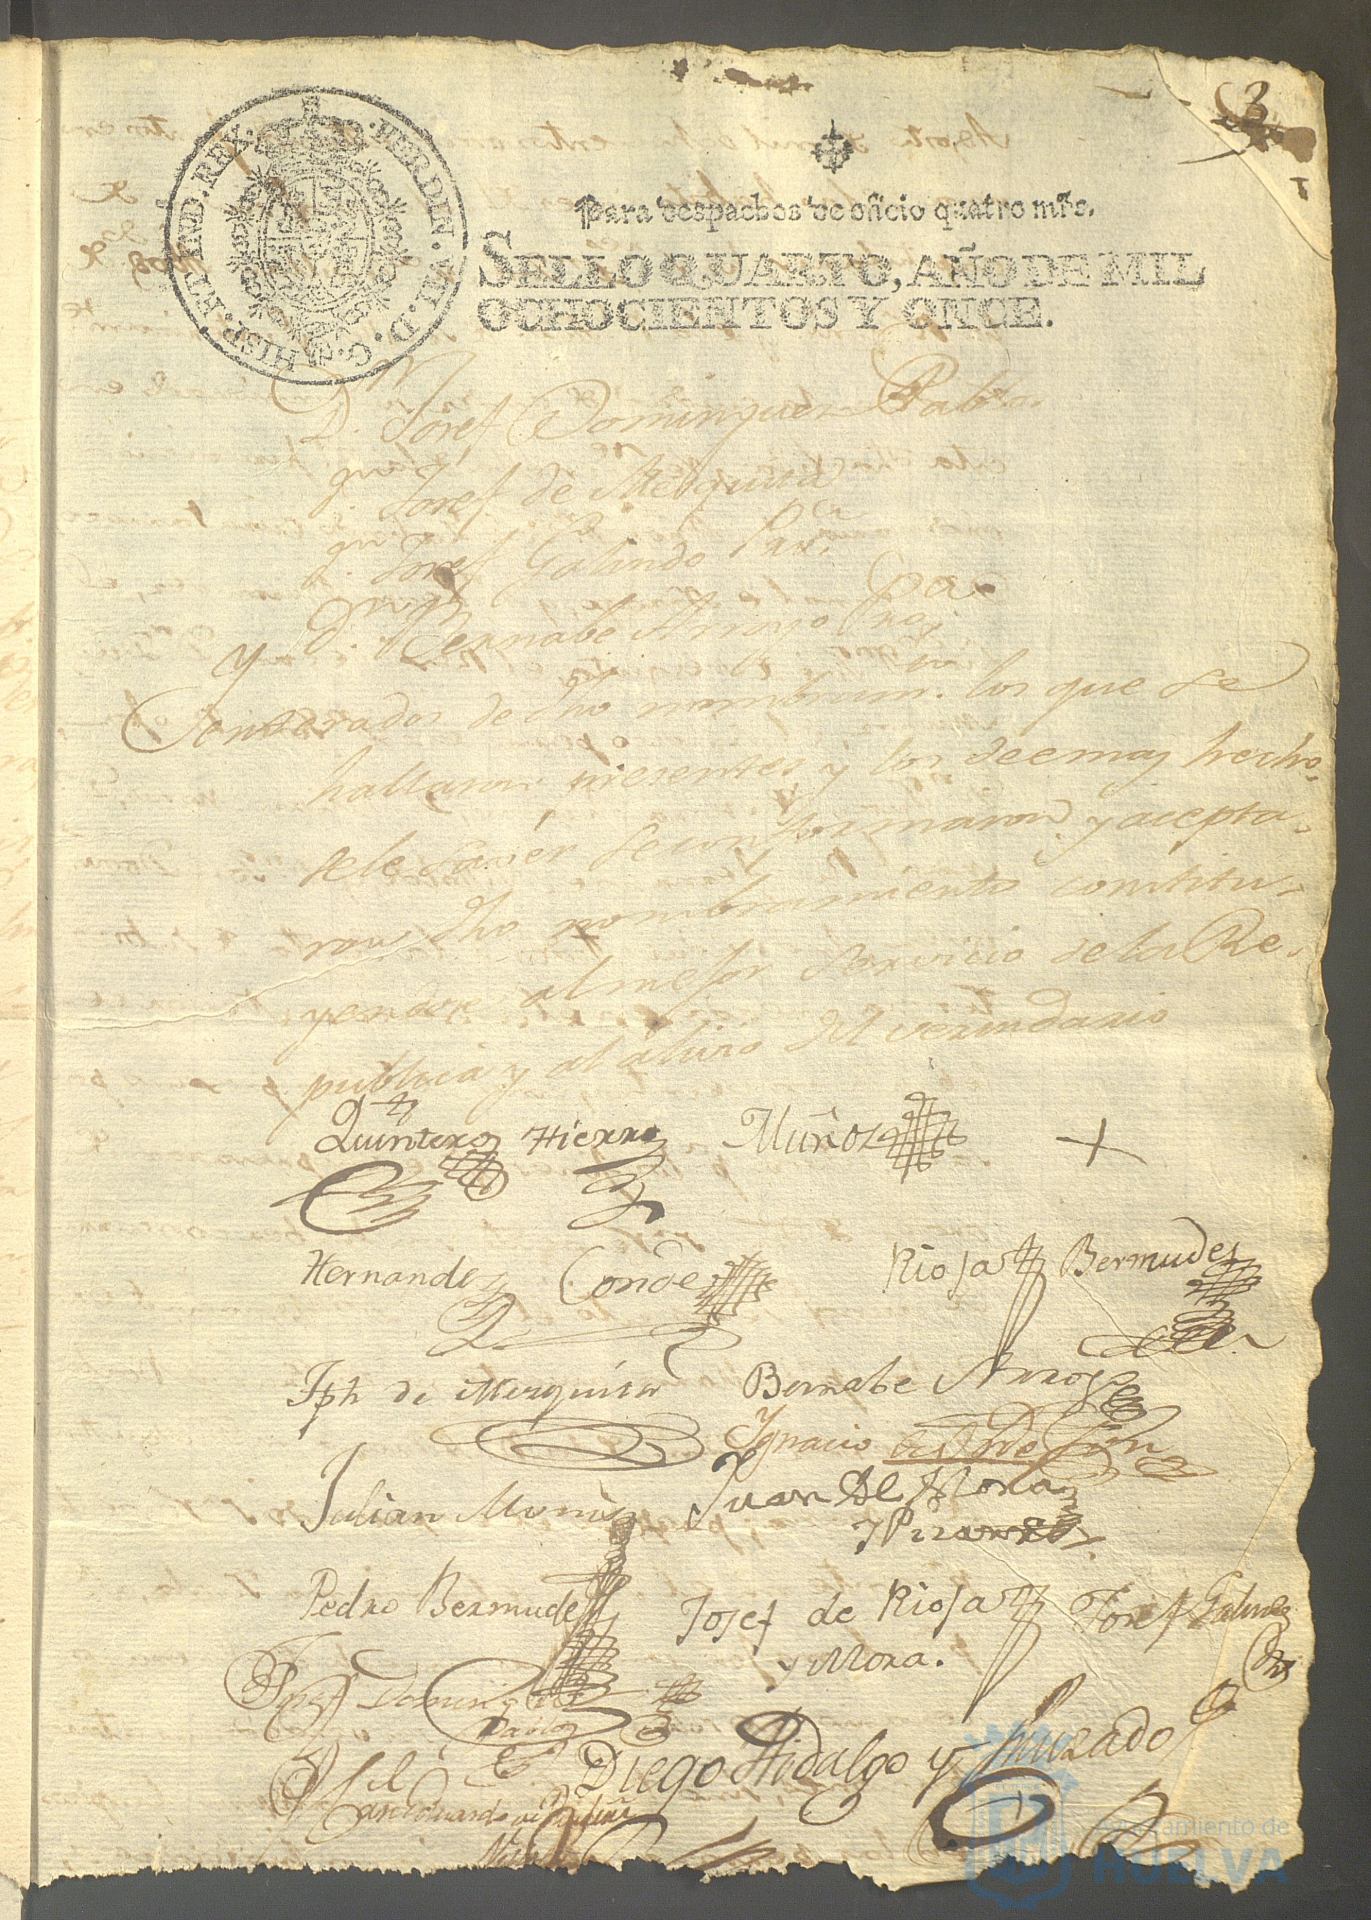 3
HISP. ET IND. REX. FERDIN. VII. D. G.
Para despachos de oficio quatro mrs.
SELLO QUARTO, AÑO DE MIL
OCHOCIENTOS Y ONCE.
D.n Josef Dominguez Pablo.
Josef de Mezquita
Josef Galindo
y D.n Bernabe Arroyo
Conterados de dho nombram.to los que se
hallaron presentes y los deemas hecho-
sele saver se conformaron y acepta-
ron dho nombramiento constitu-
yendose al mejor servicio de la Re-
publica y al alivio del vecindario
Quintero Hierro Muñoz +
Hernandez Conde Rioja Bermudez
Jph de Mezquita Bernabe Arroyo
Ignacio
Julian Munis Juan Al. Mora
y Pizarro
Pedro Bermudez Josef de Rioja Josef Galindo
y Mora.
Josef Doming.
Pablo
Diego Hidalgo y Jurado
Ayuntamiento de
HUELVA